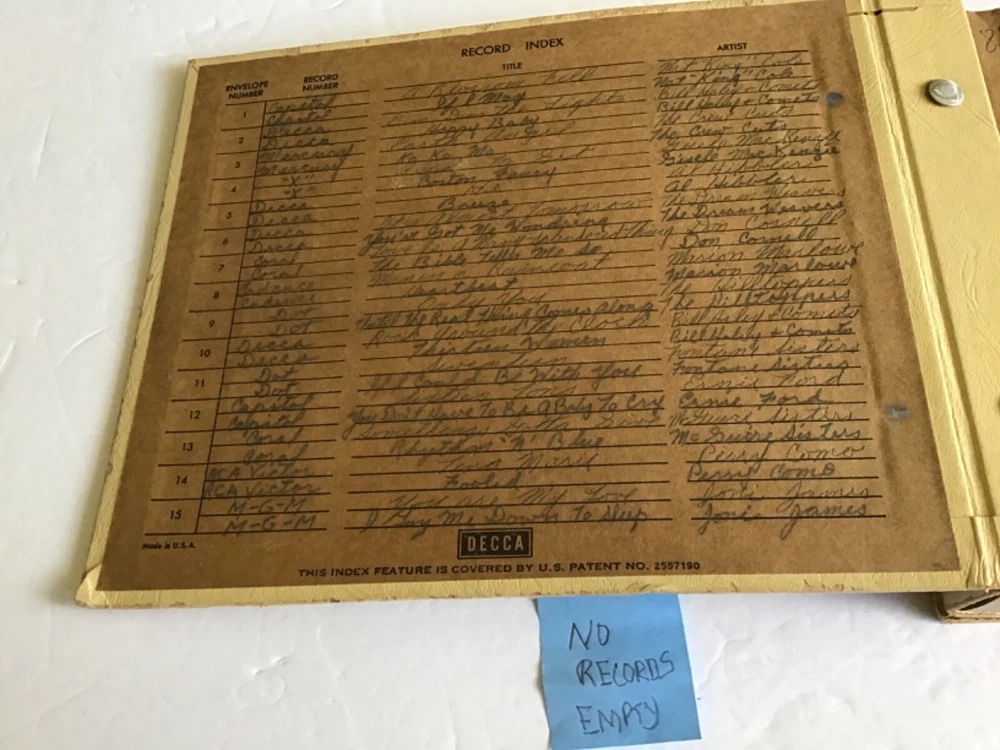 RECORD INDEX
ENVELOPE NUMBER RECORD NUMBER TITLE ARTIST
Capitol Nat "King" Cole
1 Capitol If I May Nat "King" Cole
Decca Lights Bill Haley + Comets
2 Decca Happy Baby Bill Haley + Comets
Mercury Earth Angel The Crew Cuts
3 Mercury Ko Ko Mo The Crew Cuts
"X" Gisele MacKenzie
4 "X" Boston Fancy Gisele MacKenzie
Decca He Al Hibbler
5 Decca Breeze Al Hibbler
Decca Tomorrow The Dream Weavers
6 Decca You've Got Me Wondering The Dream Weavers
Coral Love Is A Many Splendored Thing Don Cornell
7 Coral The Bible Tells Me So Don Cornell
Cadence Marion Marlowe
8 Cadence Heartbeat Marion Marlowe
Dot Only You The Hilltoppers
9 Dot Until The Real Thing Comes Along The Hilltoppers
Decca Rock Around The Clock Bill Haley + Comets
10 Decca Thirteen Women Bill Haley + Comets
Dot Seventeen Fontane Sisters
11 Dot If I Could Be With You Fontane Sisters
Capitol Sixteen Tons Ernie Ford
12 Capitol You Don't Have To Be A Baby To Cry Ernie Ford
Coral McGuire Sisters
13 Coral Rhythm 'N' Blue McGuire Sisters
RCA Victor Tina Marie Perry Como
14 RCA Victor Fooled Perry Como
M-G-M You are My Love Joni James
15 M-G-M I Lay Me Down To Sleep Joni James
Made in U.S.A.
DECCA
THIS INDEX FEATURE IS COVERED BY U.S. PATENT NO. 2557190
NO
RECORDS
EMPTY